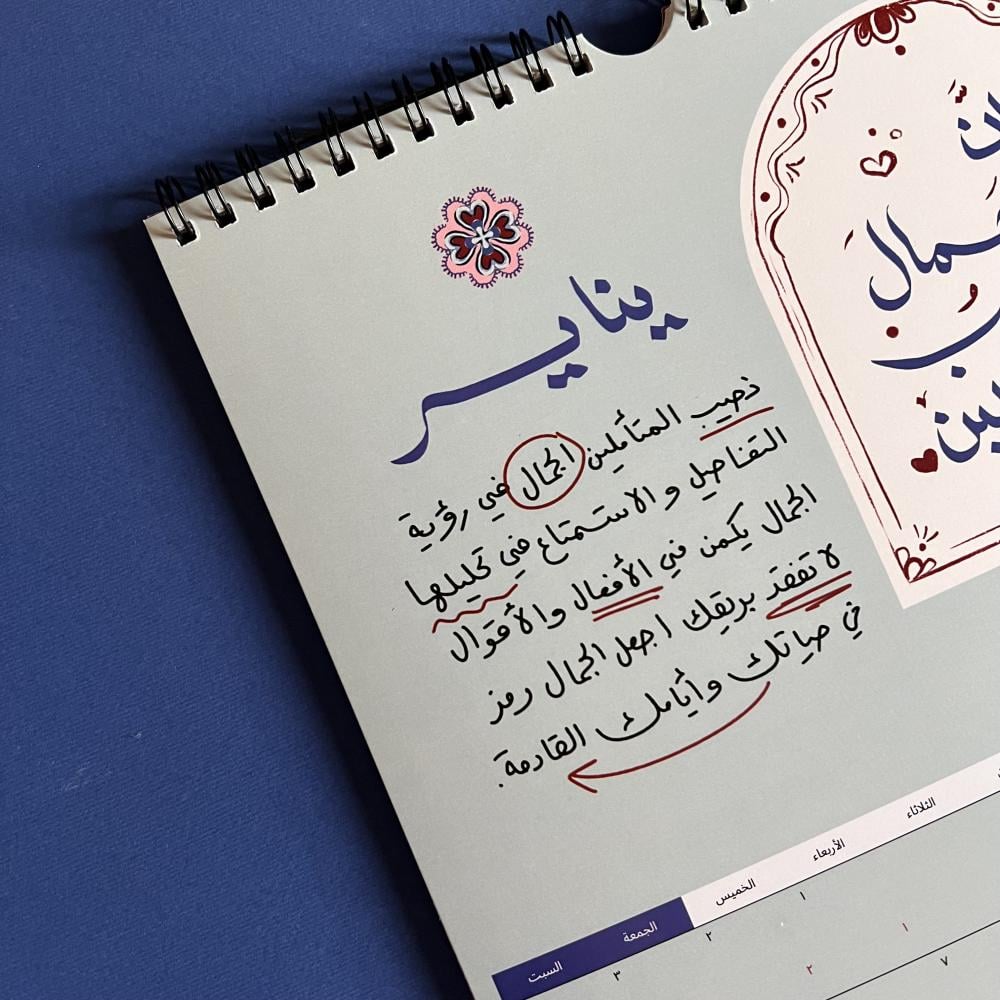 يناير
ذهيب المتأملين الجمال في رؤية
التفاصيل و الاستمتاع في تحليلها
الجمال يكمن في الأفعال والأقوال
لا تفقد بريقك اجعل الجمال رمز
في حياتك وأيامك القادمة.
الثلاثاء الأربعاء الخميس الجمعة السبت
١ ٢ ٣
١ ٢ ٧